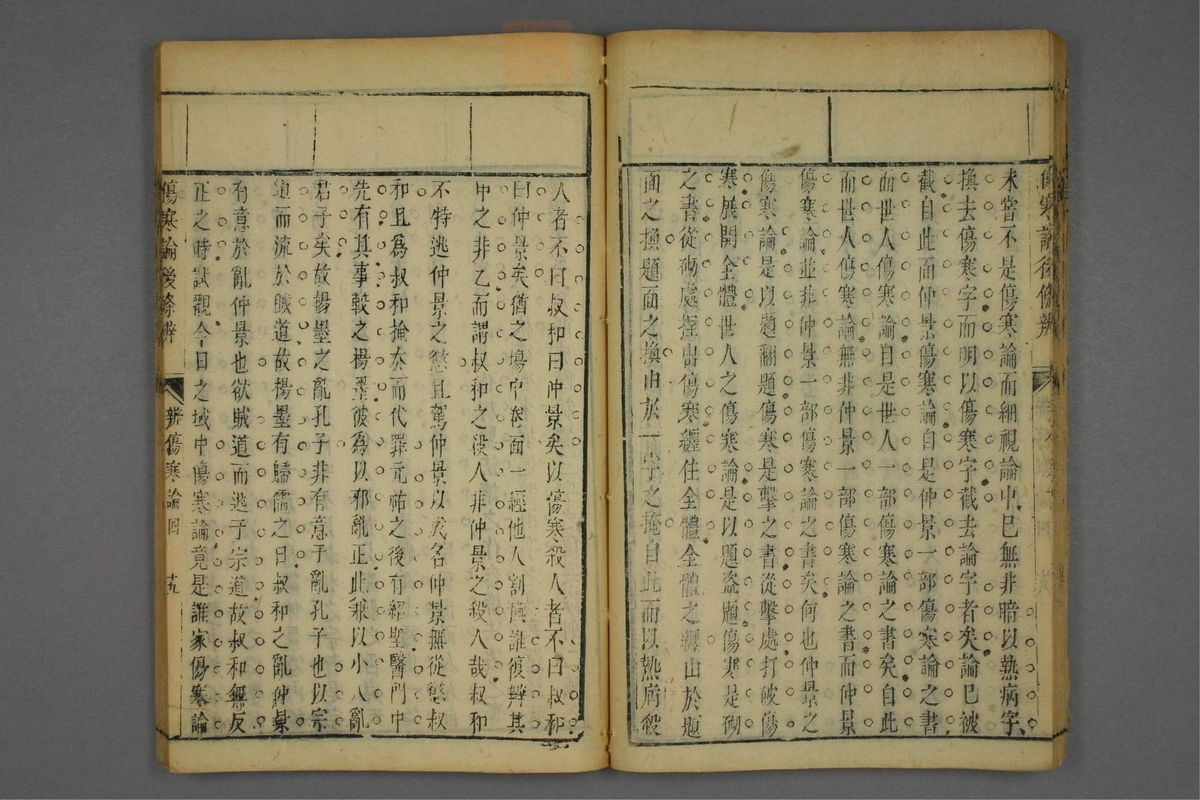 傷寒論後條辨
未嘗不是傷寒論而細視論中已無非暗以熱病字
換去傷寒字而明以傷寒字截去論字者矣論已被
截自此而仲景傷寒論自是仲景一部傷寒論之書
而世人傷寒論自是世人一部傷寒論之書矣自此
而世人傷寒論無非仲景一部傷寒論之書而仲景
傷寒論並非仲景一部傷寒論之書矣何也仲景之
傷寒論是以題翻題傷寒是擊之書從擊處打破傷
寒展開全體世人之傷寒論是以題盜題傷寒是砌
之書從砌處握出傷寒纒住全體全體之纒由於題
面之換題面之換由於一字之掩自此而以熱病殺
人者不曰叔和曰仲景矣以傷寒殺人者不曰叔和
曰仲景矣猶之場中卷面一經他人割換誰復辨其
甲之非乙而謂叔和之沒人非仲景之殺人哉叔和
不特逃仲景之愆且駕仲景以美名仲景無從愆叔
和且爲叔和掩衣而代罪元祐之後有紹聖醫門中
先有其事較之楊墨彼爲以邪亂正此乘以小人亂
君子矣故楊墨之亂孔子非有意于亂孔子也以宗
道而流於賊道故楊墨有歸儒之日叔和之亂仲景
有意於亂仲景也欲賊道而逃于宗道故叔和無反
正之時試觀今日之域中傷寒論竟是誰家傷寒論
傷寒論後條辨 辨傷寒論四 十九